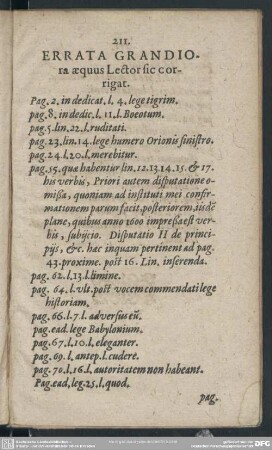 211.
ERRATA GRANDIO-
ra æquus Lector sic cor-
rigat.
Pag. 2. in dedicat. l. 4. lege tigrim.
pag. 8. in dedic. l. 11. l. Bocotum.
pag. 5. lin. 22. l. ruditati.
pag. 23. lin. 14. lege humero Orionis sinistro.
pag. 24. l. 20. l. merebitur.
pag. 35. qua habentur lin. 12. 13. 14. 15. & 17.
his verbis, Priori autem disputatione o-
missa, quoniam ad instituti mei confir-
mationem parum facit, posteriorem,
plane, quibus anno 1600 impressa est ver-
bis, subijcio. Disputatio H de princi-
pijs, &c. hæc inquam pertinent ad pag.
43. proxime. post 16. Lin. inserenda.
pag. 62. l. 13. l. limine.
pag. 64. l. vlt. post vocem commendati lege
historiam.
pag. 66. l. 7. l. adversus eũ.
pag. ead. lege Babylonium.
pag. 67. l. 10. l. eleganter.
pag. 69. l. antep. l. cudere.
pag. 70. l. 16. l. autoritatem non habeant.
Pag. ead. leg. 25. l. quod.
pag.